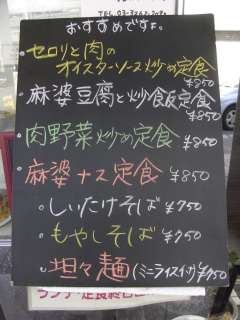 おすすめですよ。
・セロリと肉の
オイスターソース炒め定食
¥850
・麻婆豆腐と炒飯定食
¥850
・肉野菜炒め定食 ¥850
・麻婆ナス定食 ¥850
・しいたけそば ¥750
・もやしそば ¥750
・坦々麺(ミニライス付) ¥750